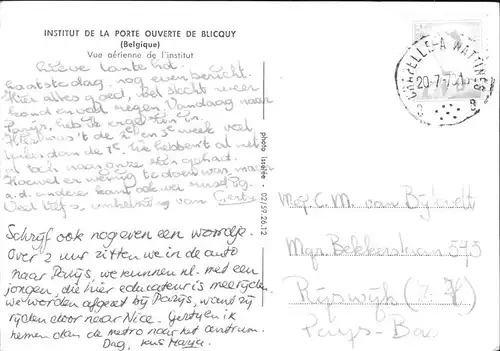 INSTITUT DE LA PORTE OUVERTE DE BLICQUY
(Belgique)
Vue aérienne de l'institut
Lieve tante
Laatste dag, nog even bericht.
Hier alles goed, slecht weer
koud en veel regen. Vandaag naar
Parijs, heb er erge zin in.
't de 2e en 3e week veel
dan de 1e. We hebben 't al met
al toch naar onze zin gehad.
Hoewel er weinig te doen was, maar
a.d. andere kant ook wel rustig.
Veel liefs, omhelzing van Gerty
Schrijf ook nog even een woordje.
Over 2 uur zitten we in de auto
naar Parijs, we kunnen nl. met een
jongen, die hier educateur is meerijden.
We worden afgezet bij Parijs, want zij
rijden door naar Nice. Gerty en ik
nemen dan de metro naar het centrum.
Dag, kus Marja.
photo isolée - 02/59.26.12
CHAPELLE-A-WATTINES
20-7-
B
Mej. C. M. van Bijlevelt
Mgr. Bekkerslaan 575
Rijswijk (Z.H)
Pays-Bas